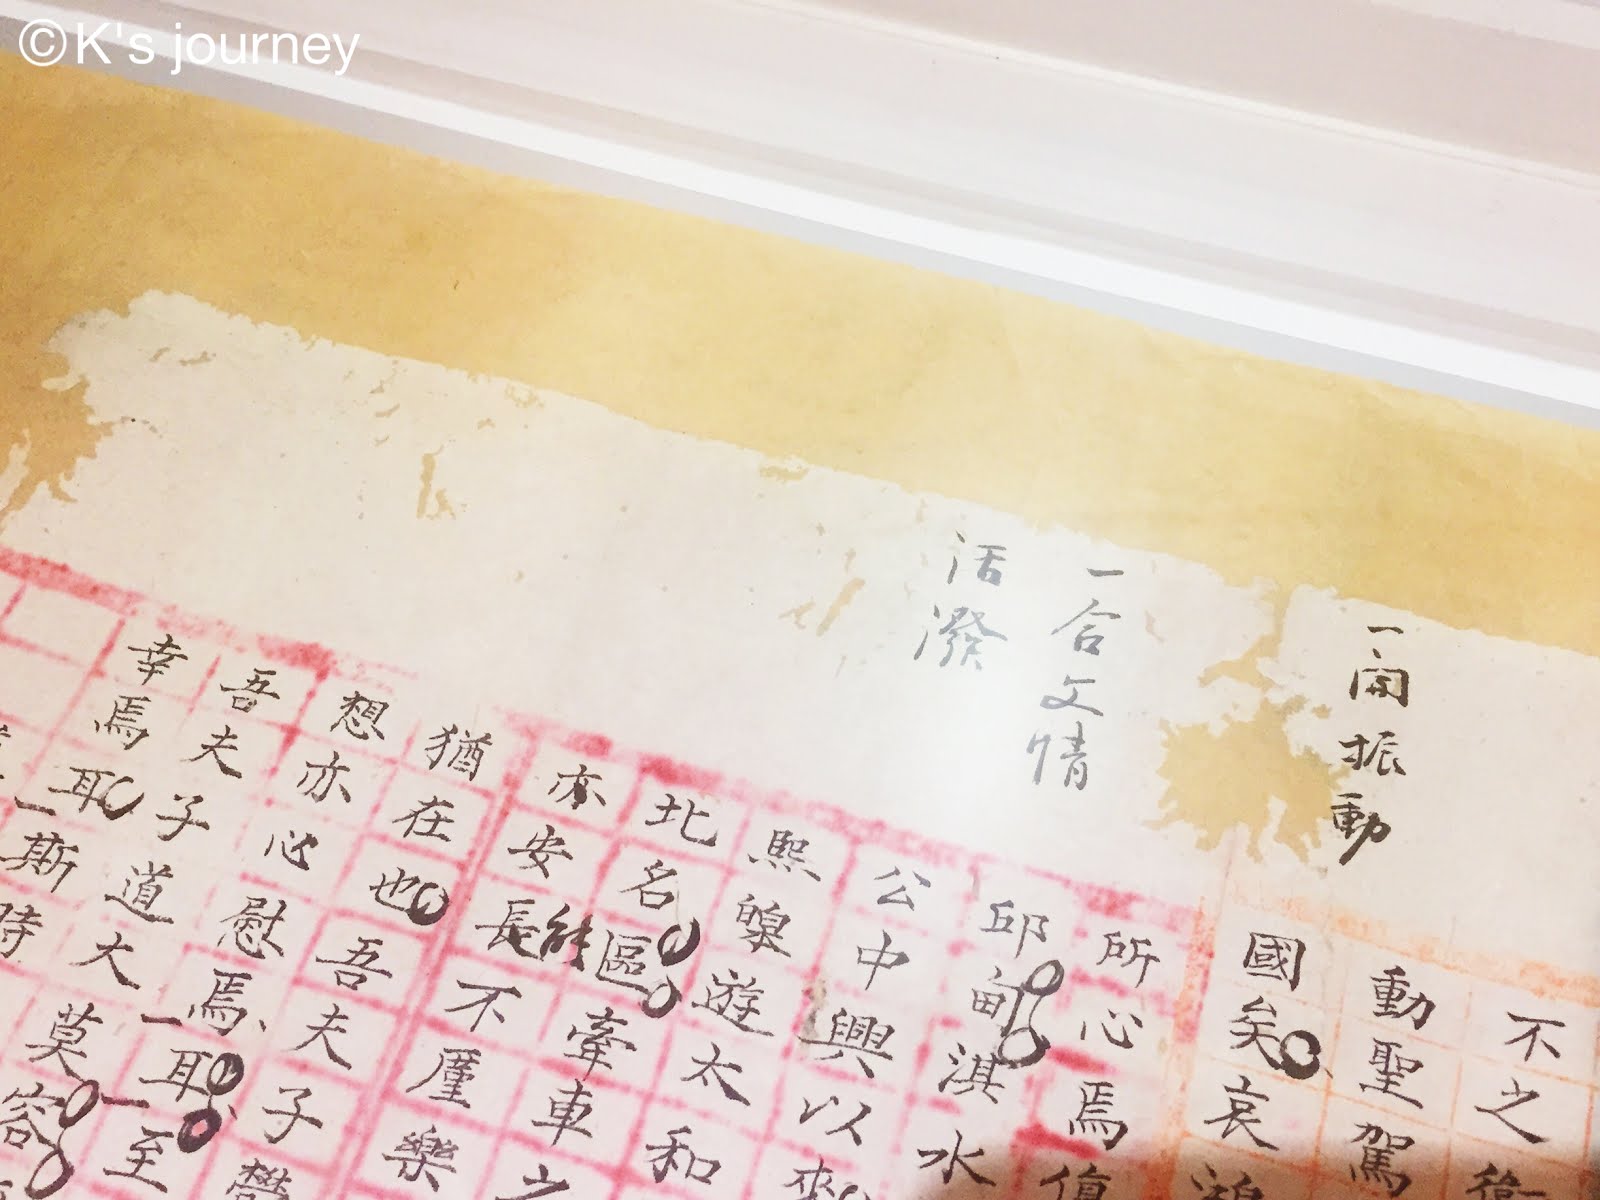 ©K's journey
一開振動
一合文情
活潑
不之衛
動聖駕
國矣哀鴻
所心焉
邱甸淇水
公中興以來
熙皞遊太和
北名區牽車之
亦安長能不厪樂
猶在也吾夫子欝
想亦心慰焉一耳一至
吾夫子道大莫容
幸焉耳一斯時